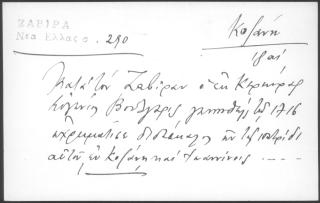 ΖΑΒΙΡΑ
Νέα Ελλάς σ. 290
Κοζάνη
Κατά τον Ζαβίραν ο εκ Κερκύρας
Ευγένιος Βούλγαρις γεννηθείς τω 1716
εχρημάτισε διδάσκαλος εν τη πατρίδι
αυτού, εν Κοζάνη και Ιωαννίνοις ....